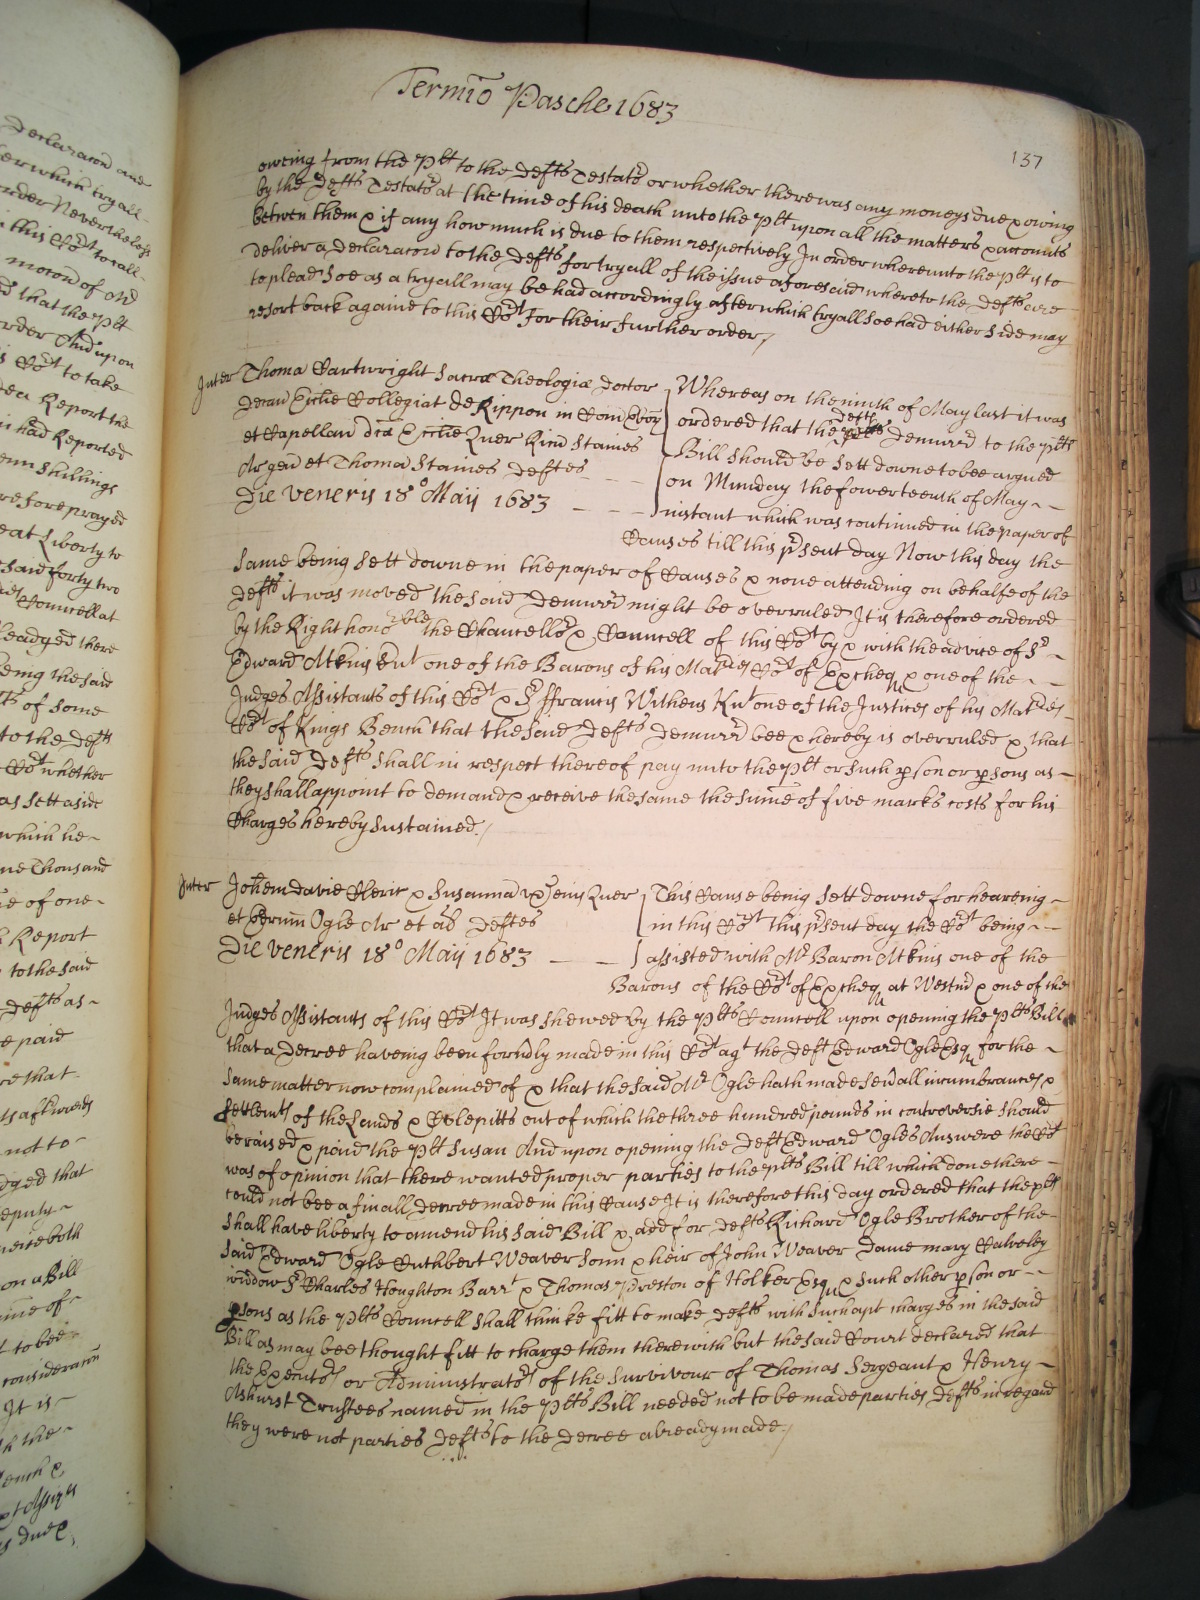 Termĩo Pasche 1683
137
oweing from the plt to the Defts Testatr or whether there was any moneys due & owing
by the Defts Testatr at the time of his death unto the plt upon all the matters & accounts
betwen them & if any how much is due to them respectively In order whereunto the plt is to
Deliver a Declaracon to the Defts for tryall of the issue aforesaid whereto the Defts are
to plead Soe as a tryall may be had accordingly after which tryall soe had either side may
resort back againe to this Cort For their further order /
Inter Thoma Cartwright Sacræ Theologiæ Doctor
Decan Ecclie Collegiat de Rippon in Com Ebor
et Capellan dict Ecclie Quer Ricũ Staines
Ar gen et Thoma Staines Deftes
Die Veneris 18° Maij 1683
Whereas on the ninth of May last it was
ordered that the Defts Demurrr to the plts
Bill should be sett downe to bee argued
on Munday the fowerteenth of May
instant which was continued in the paper of
Causes till this p̃sent day Now this day the
Same being Sett downe in the paper of Causes & none attending on behalfe of the
Defts it was moved the said Demurrr might be overruled It is therefore ordered
by the Right honoble the Chancellor & Councell of this Cort by & with the advice of Sr
Edward Atkins Knt one of the Barons of his Maties Cort of Excheqr & one of the
Judges Assistants of this Cort & Sr ffrancis Withens Knt one of the Justices of his Maties
Cort of Kings Bench that the said Defts Demurrr bee & hereby is overruled & that
the said Defts shall in respect thereof pay unto the plt or such pson or psons as
they shall appoint to demand & receive the same the sum̃e of five marks costs for his
Charges hereby Sustained /
Inter Johem Davie Cleric & Susanna ux eius Quer
et Edrum Ogle Ar et al Deftes
Die Veneris 18° Maij 1683
This Cause being Sett downe for heareing
in this Cort this p̃sent day the Cort being
assisted with Mr Baron Atkins one of the
Barons of the Cort of Excheqr at Westmr & one of the
Judges Assistants of this Cort It was shewed by the plts Councell upon opening the plts Bill
that a Decree haveing been formerly made in this Cort agt the Deft Edward Ogle Esqr for the
same matter now complained of & that the said Mr Ogle hath made severall incumbrances &
settlemts of the lands & Colepitts out of which the three hundred pounds in controversie should
be raised & paid the plt Susan And upon opening the Deft Edward Ogles Answere the Cort
was of opinion that there wanted proper parties to the plts Bill till which done there
could not bee a finall Decree made in this Cause It is therefore this day ordered that the plt
shall have liberty to amend his said Bill & add for Defts Richard Ogle Brother of the
said Edward Ogle Cuthbert Weaver Sonn & heir of John Weaver Dame Mary Calveley
widdow Sr Charles Houghton Barrt & Thomas Preston of Holker Esqr & such other pson or
psons as the plts Councell shall thinke fitt to make Defts with such apt charges in the said
Bill as may bee thought fitt to charge them therewith but the said Court declared that
the Executrs or Administratrs of the Survivour of Thomas Sergeant & Henry
Ashurst Trustees named in the plts Bill needed not to be made parties Defts in regard
they were not parties Defts to the Decree already made /